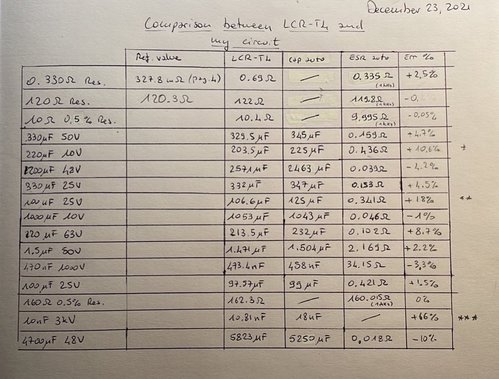 December 23, 2021
Comparison between LCR-T4 and
my circuit
Ref. value LCR-T4 Cap auto ESR auto Err %
0.330Ω Res. 327.8 mΩ (Pag.4) 0.69Ω — 0.335Ω (1kHz) +2,5%
120Ω Res. 120.3Ω 122Ω — 119.8Ω (1kHz) -0.
10Ω 0,5% Res. 10.4Ω — 9.995Ω (1kHz) -0,05%
330μF 50V 329.5μF 345μF 0.159Ω +4.7%
220μF 10V 203.5μF 225μF 0.436Ω +10,6% *
2200μF 48V 2571μF 2463μF 0.039Ω -4.2%
330μF 25V 332μF 347μF 0.153Ω +4.5%
100μF 25V 106.6μF 125μF 0.341Ω +18% **
1000μF 10V 1053μF 1043μF 0.046Ω -1%
220μF 63V 213.5μF 232μF 0.102Ω +8.7%
1,5μF 50V 1.471μF 1.504μF 2.169Ω +2.2%
470nF 1000V 473.4nF 458nF 34.15Ω -3,3%
100μF 25V 97.57μF 99μF 0.421Ω +1.5%
160Ω 0.5% Res. 162.3Ω — 160.015Ω (1kHz) 0%
10nF 3kV 10.81nF 18nF — +66% ***
4700μF 48V 5823μF 5250μF 0,018Ω -10%